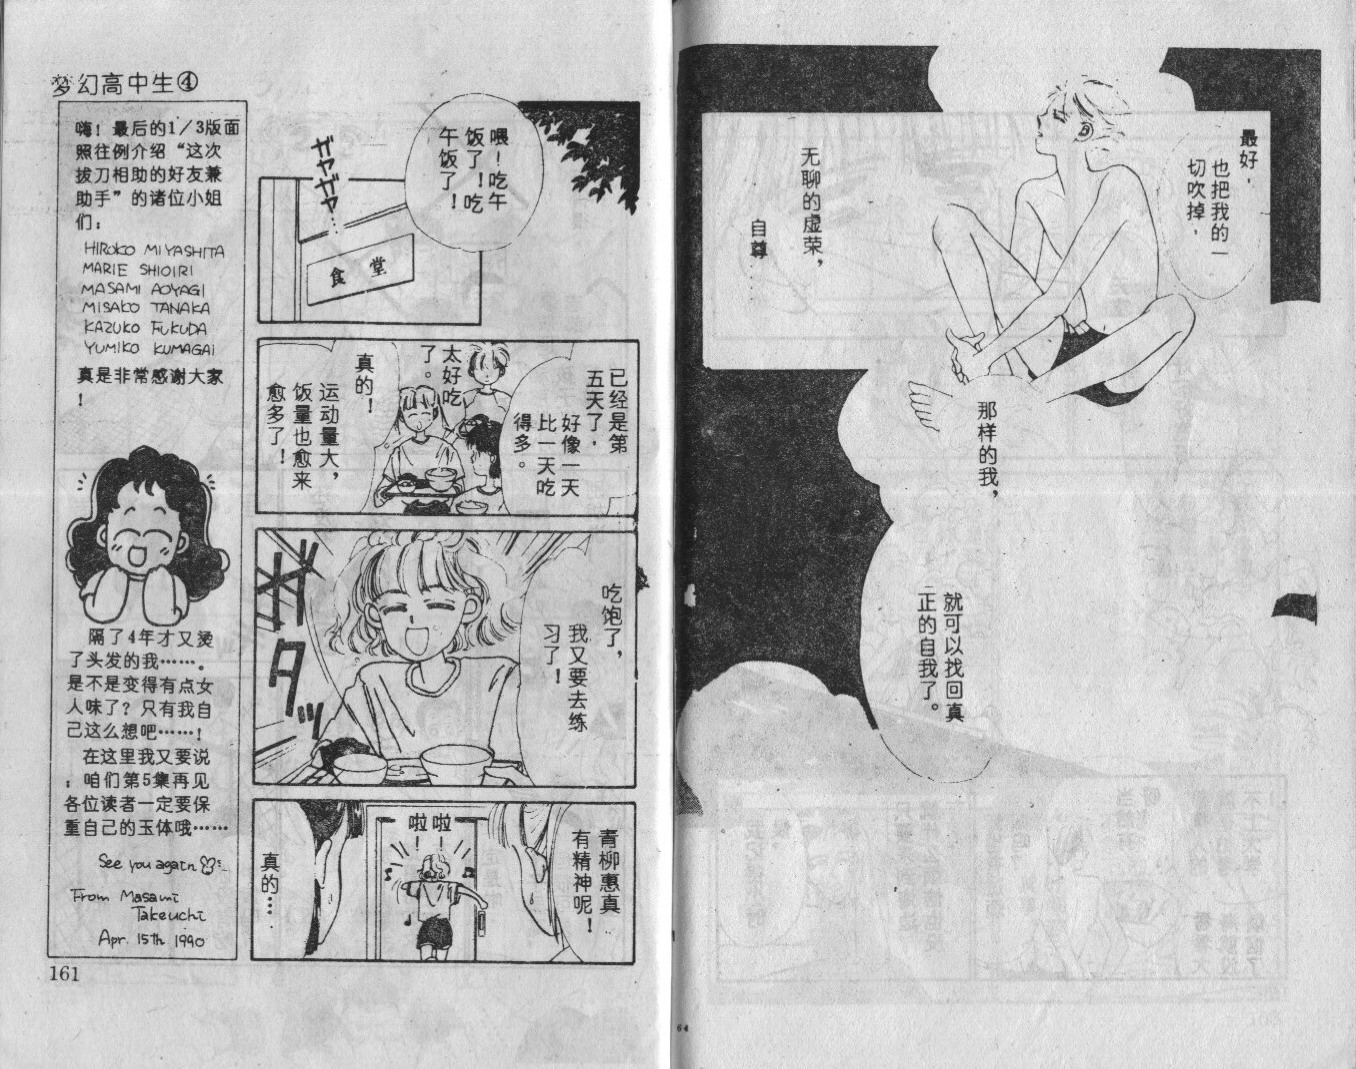 梦幻高中生④
嗨！最后的1／3版面
照往例介绍“这次
拔刀相助的好友兼
助手”的诸位小姐
们：
HIROKO MIYASHITA
MARIE SHIOIRI
MASAMI AOYAGI
MISAKO TANAKA
KAZUKO FUKUDA
YUMIKO KUMAGAI
真是非常感谢大家
！
隔了4年才又烫
了头发的我……。
是不是变得有点女
人味了？只有我自
己这么想吧……！
在这里我又要说
：咱们第5集再见
各位读者一定要保
重自己的玉体哦……
See you again
From Masami
Takeuchi
Apr. 15th 1990
161
喂！吃午
饭了！吃
午饭了！
ガヤガヤ…
食堂
已经是第
五天了．
好像一天
比一天吃
得多。
太好吃
了。
真的！
运动量大，
饭量也愈来
愈多了！
吃饱了，
我又要去练
习了！
ガタッ
青柳惠真
有精神呢！
啦啦
！！
真的…
最好．
也把我的一
切吹掉．
无聊的虚荣，
自尊……
那样的我，
就可以找回真
正的自我了。
64